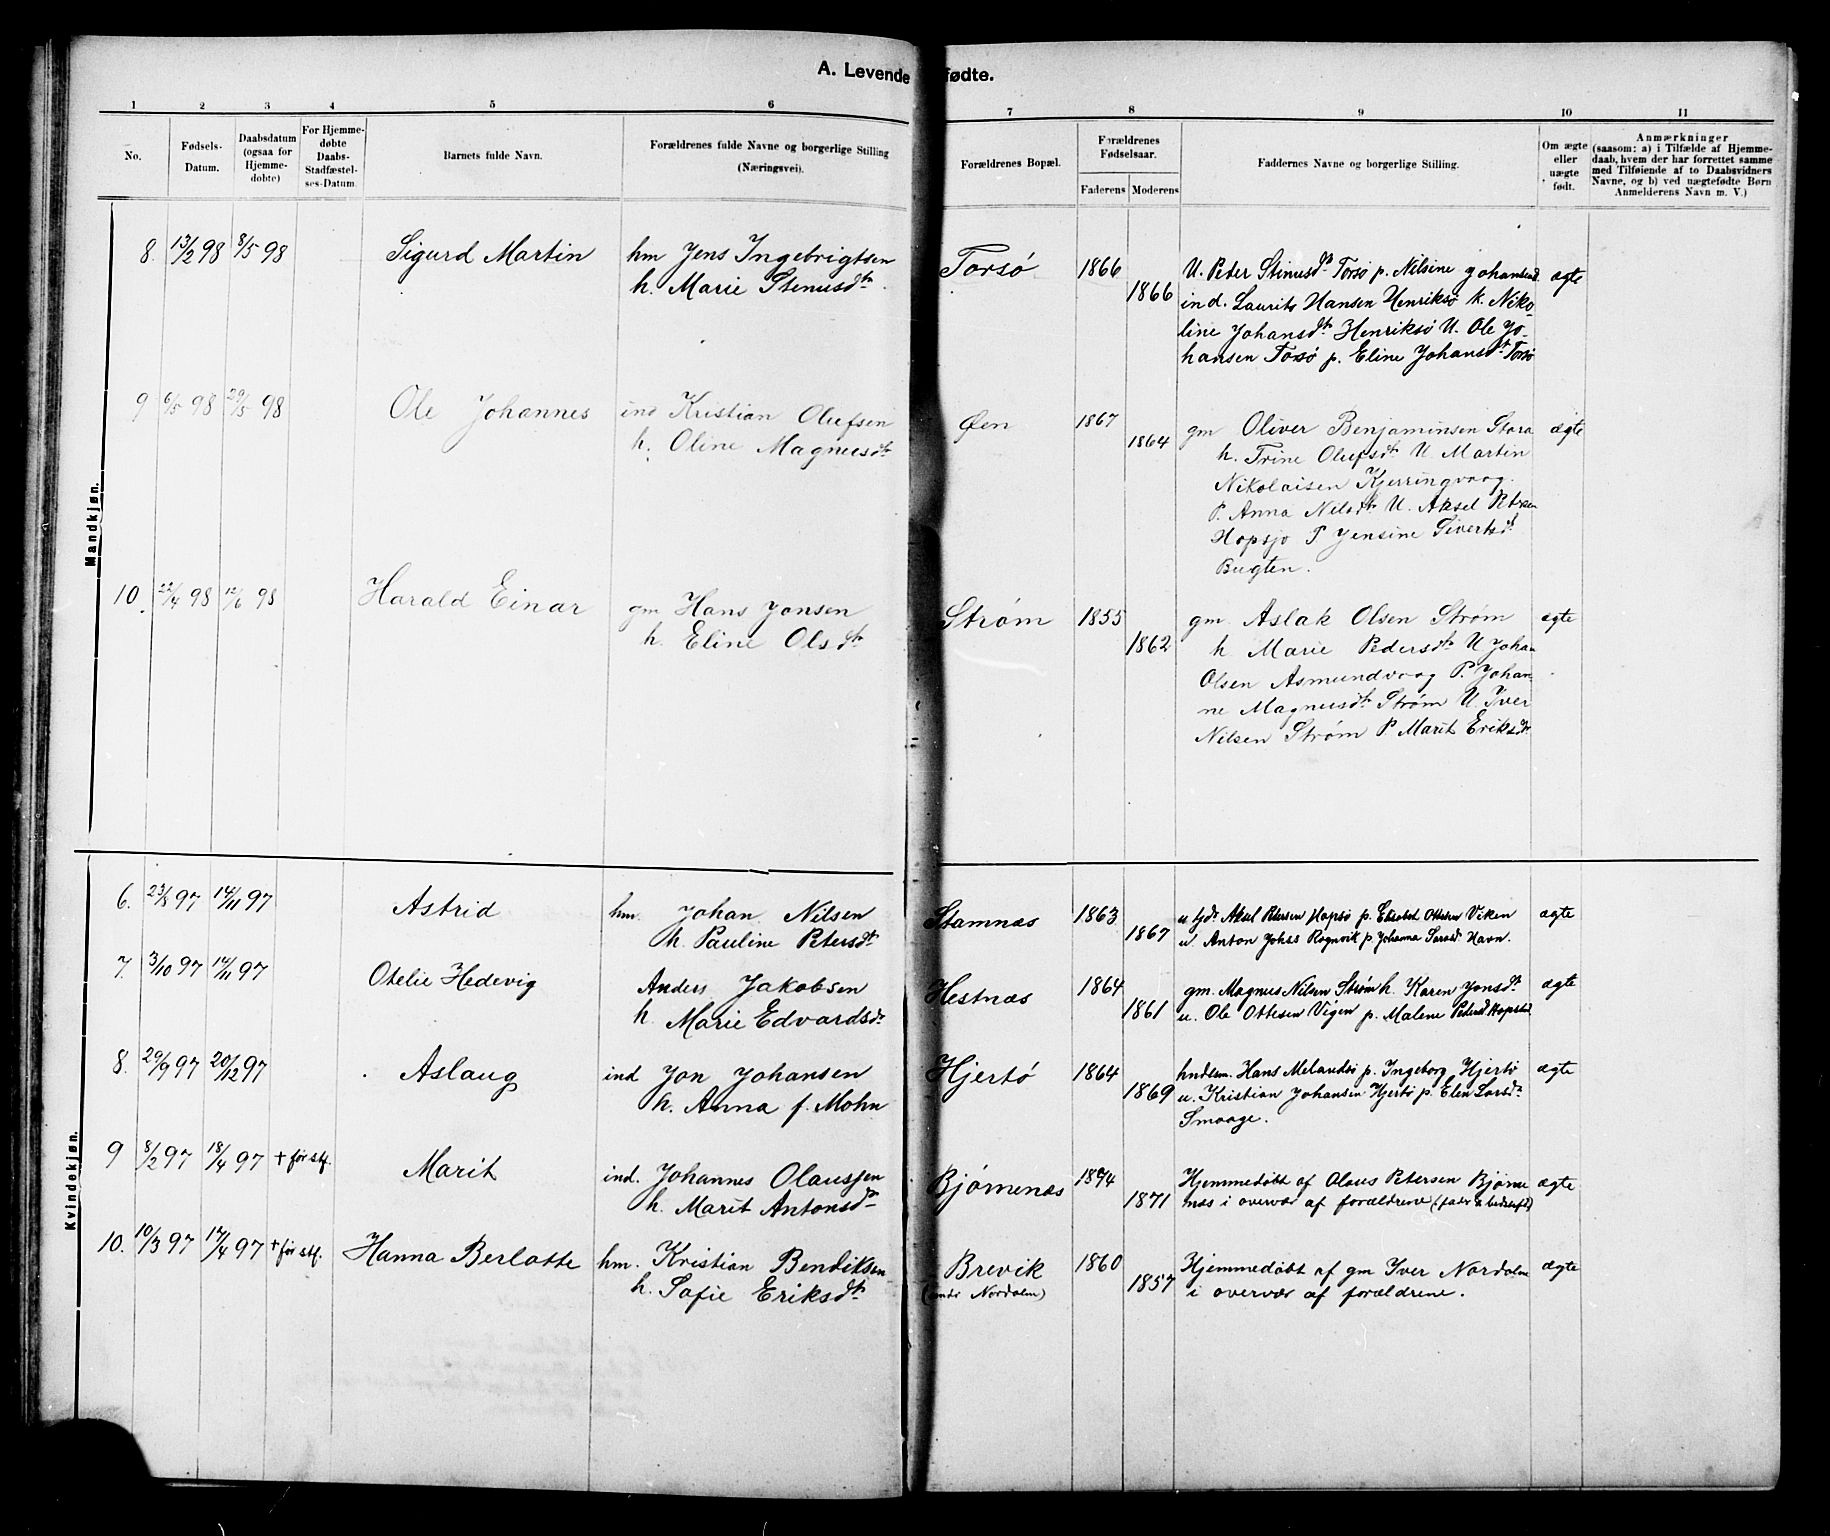 A. Levende fødte.
1 2 3 4 5 6 7 8 9 10 11
No.
Fødsels-
Datum.
Daabsdatum
(ogsaa for
Hjemme-
døbte)
For Hjemme-
døbte
Daabs-
Stadfæstel-
ses-Datum.
Barnets fulde Navn.
Forældrenes fulde Navne og borgerlige Stilling
(Næringsvei).
Forældrenes Bopæl.
Forældrenes
Fødselsaar.
Faderens Moderens
Faddernes Navne og borgerlige Stilling.
Om ægte
eller
uægte
født.
Anmærkninger
(saasom: a) i Tilfælde af Hjemme-
daab, hvem der har forrettet samme
med Tilføiende af to Daabsvidners
Navne, og b) ved uægtefødte Børn
Anmelderens Navn m. V.)
Mandkjøn.
8. 13/2 98 8/5 98 Sigurd Martin
hm Jens Ingebrigtsen
h. Marie Stenusdtr
Torsø 1866 1866
U. Peder Stinusd Torsø p. Nilsine Johansd
ind. Laurits Hansen Henriksø k. Niko-
line Johansdt Henriksø U. Ole Jo-
hansen Torsø p. Eline Johansdt Torsø
ægte
9 6/5 98 29/5 98 Ole Johannes
ind Kristian Olufsen
h. Oline Magnusdt
Øen 1867 1864
gm Oliver Benjaminsen Stora
h. Trine Olufsdt U Martin
Nikolaisen Kjerringvaag.
P. Anna Nilsdt U. Aksel Petersen
Hopsjø P Jensine Sivertsdt
Bugten.
ægte
10. 22/4 98 12/6 98 Harald Einar
gm Hans Jonsen
h. Eline Olsdt
Strøm 1855 1862
gm Aslak Olsen Strøm
h Marie Pedersdt U Johan
Olsen Asmundvaag P. Johan-
ne Magnusdt Strøm U. Iver
Nilsen Strøm P Marit Eriksdt
ægte
Kvindekjøn.
6. 23/8 97 14/11 97 Astrid
hm. Johan Nilsen
h. Pauline Petersdt
Stamnæs 1863 1867
u tjdr Aksel Petersen Hopsø p. Elisabet Ottesen Viken
u. Anton Johas Rognvik p. Johanna Larsd. Havn.
ægte
7. 3/10 97 14/11 97 Otelie Hedevig
Anders Jakobsen
h. Marie Edvardsdt
Hestnæs 1864 1861
gm. Magnus Nilsen Strøm h. Karen Jonsdt
u. Ole Ottesen Vigen p. Malene Pedersd Hopstad
ægte
8. 29/9 97 20/12 97 Aslaug
ind Jon Johansen
h. Anna f. Mohn
Hjertø 1864 1869
hndlsm. Hans Melandsø p. Ingeborg Hjertø
u. Kristian Johansen Hjertø p. Elen Larsdt
Smaage.
ægte
9 8/2 97 18/4 97 + før stf. Marit
ind. Johannes Olaussen
h. Marit Antonsdtr
Bjørnenæs 1874 1871
Hjemmedøbt af Olaus Petersen Bjørne
næs i overvær af forældrene
ægte
10. 10/3 97 17/4 97 + før stf. Hanna Berlotte
hm. Kristian Bendiksen
h. Sofie Eriksdt
Brevik
(undr Nordolm)
1860 1857
Hjemmedøbt af gm Iver Nordolm
i overvær af forældrene.
ægte